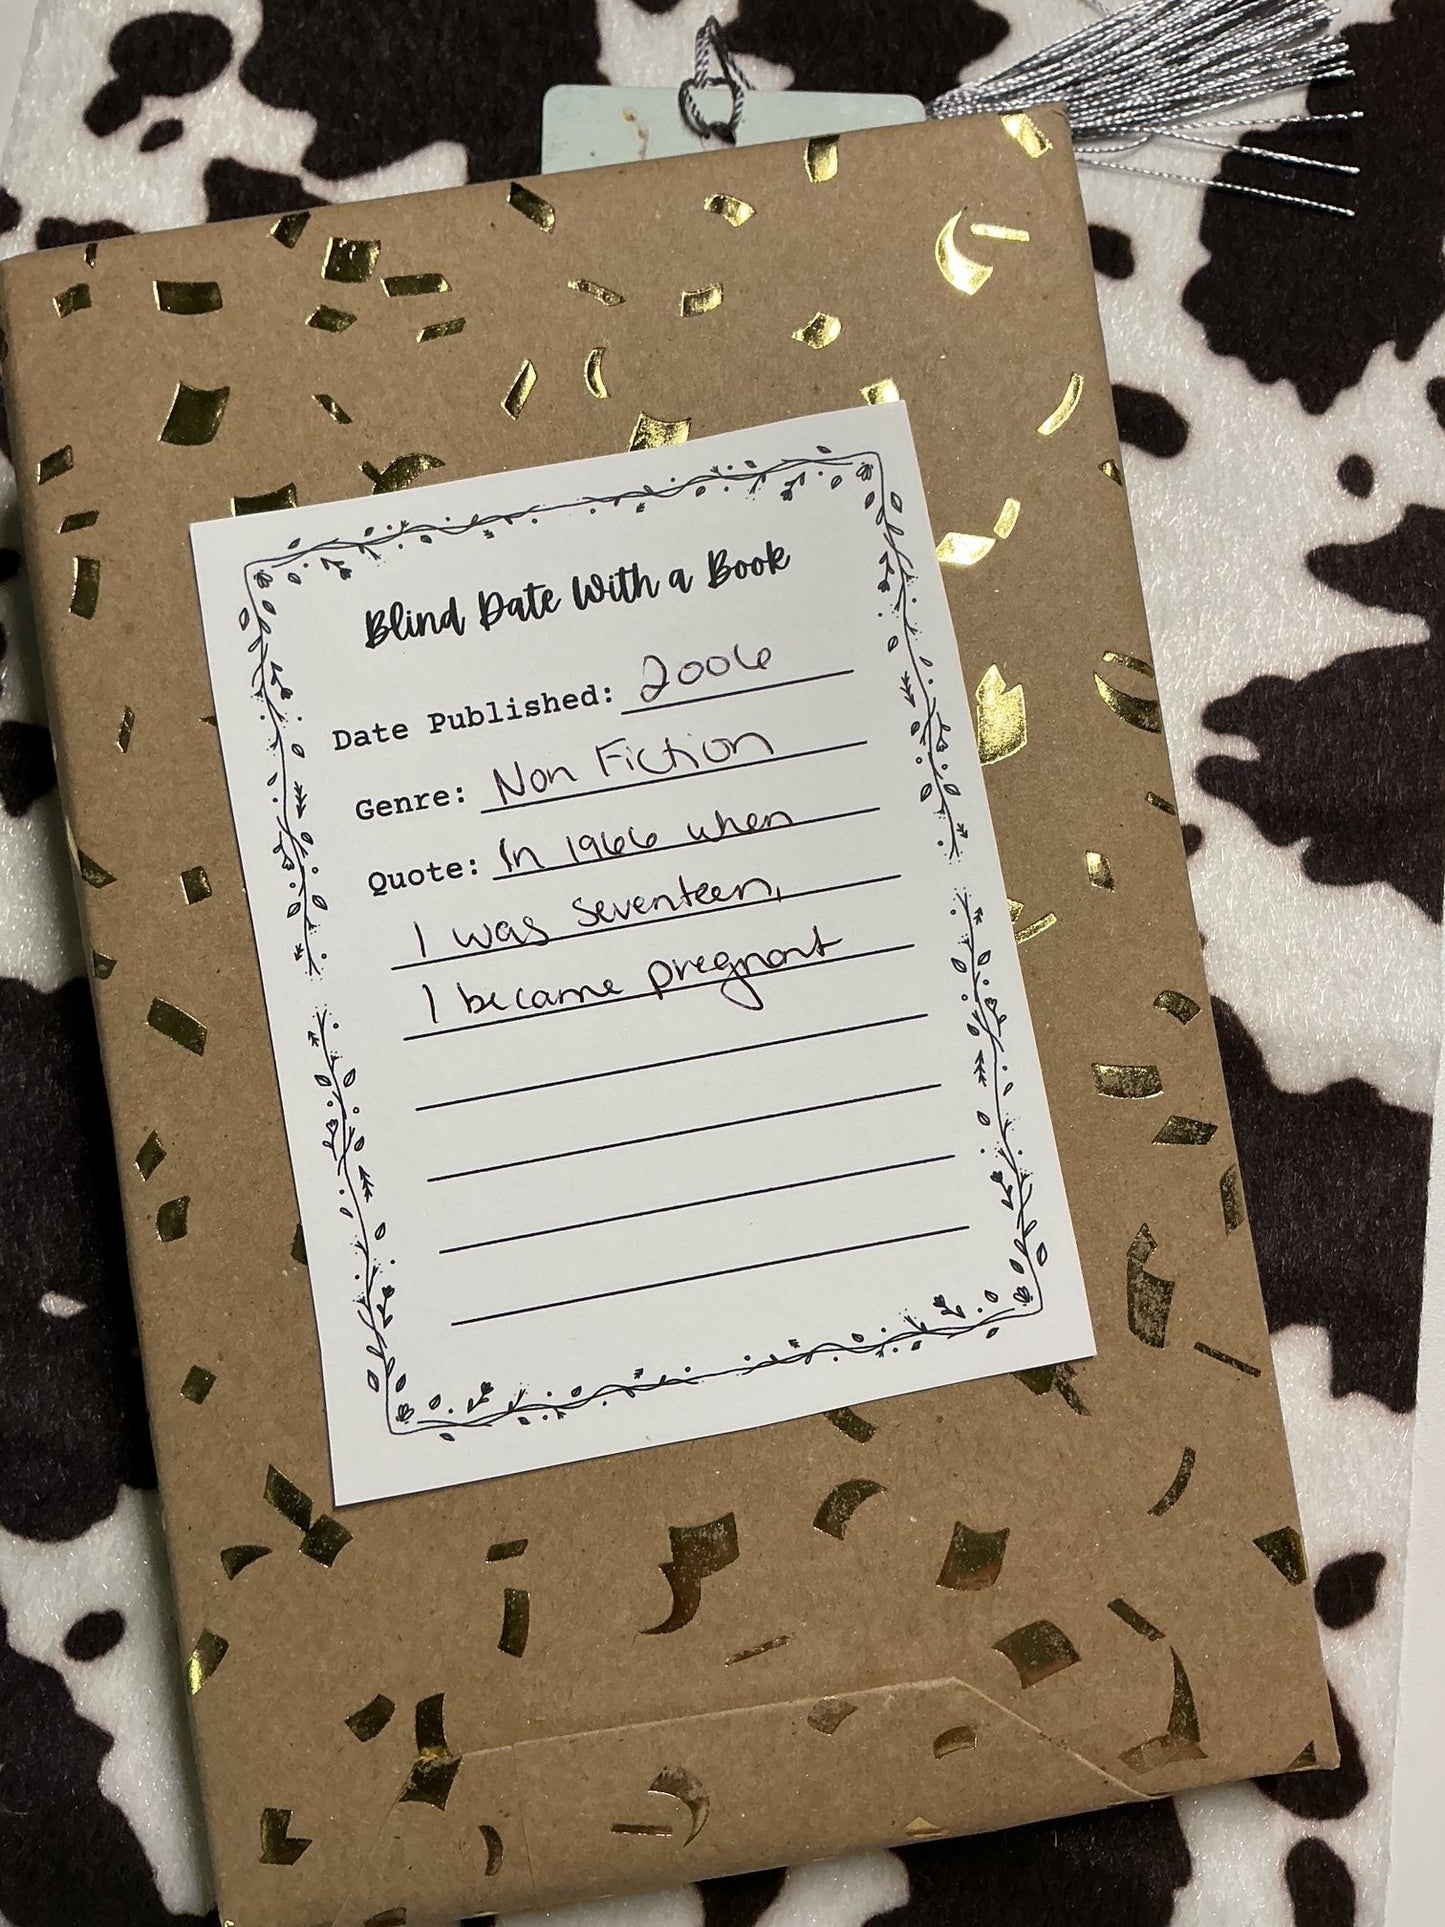 Blind Date With a Book
Date Published: 2006
Genre: Non Fiction
Quote: In 1966 when
I was seventeen,
I became pregnant